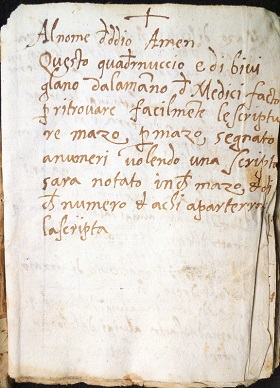 Al nome d dio Amen
Questo quadernuccio e di bivi
gliano dalamano d Medici facto
p ritrovare facilmente le scriptu
re mazo, p mazo, segnato
anumeri volendo una scripta
sara notato in q mazo, &
q numero & achi aparterra
la scripta